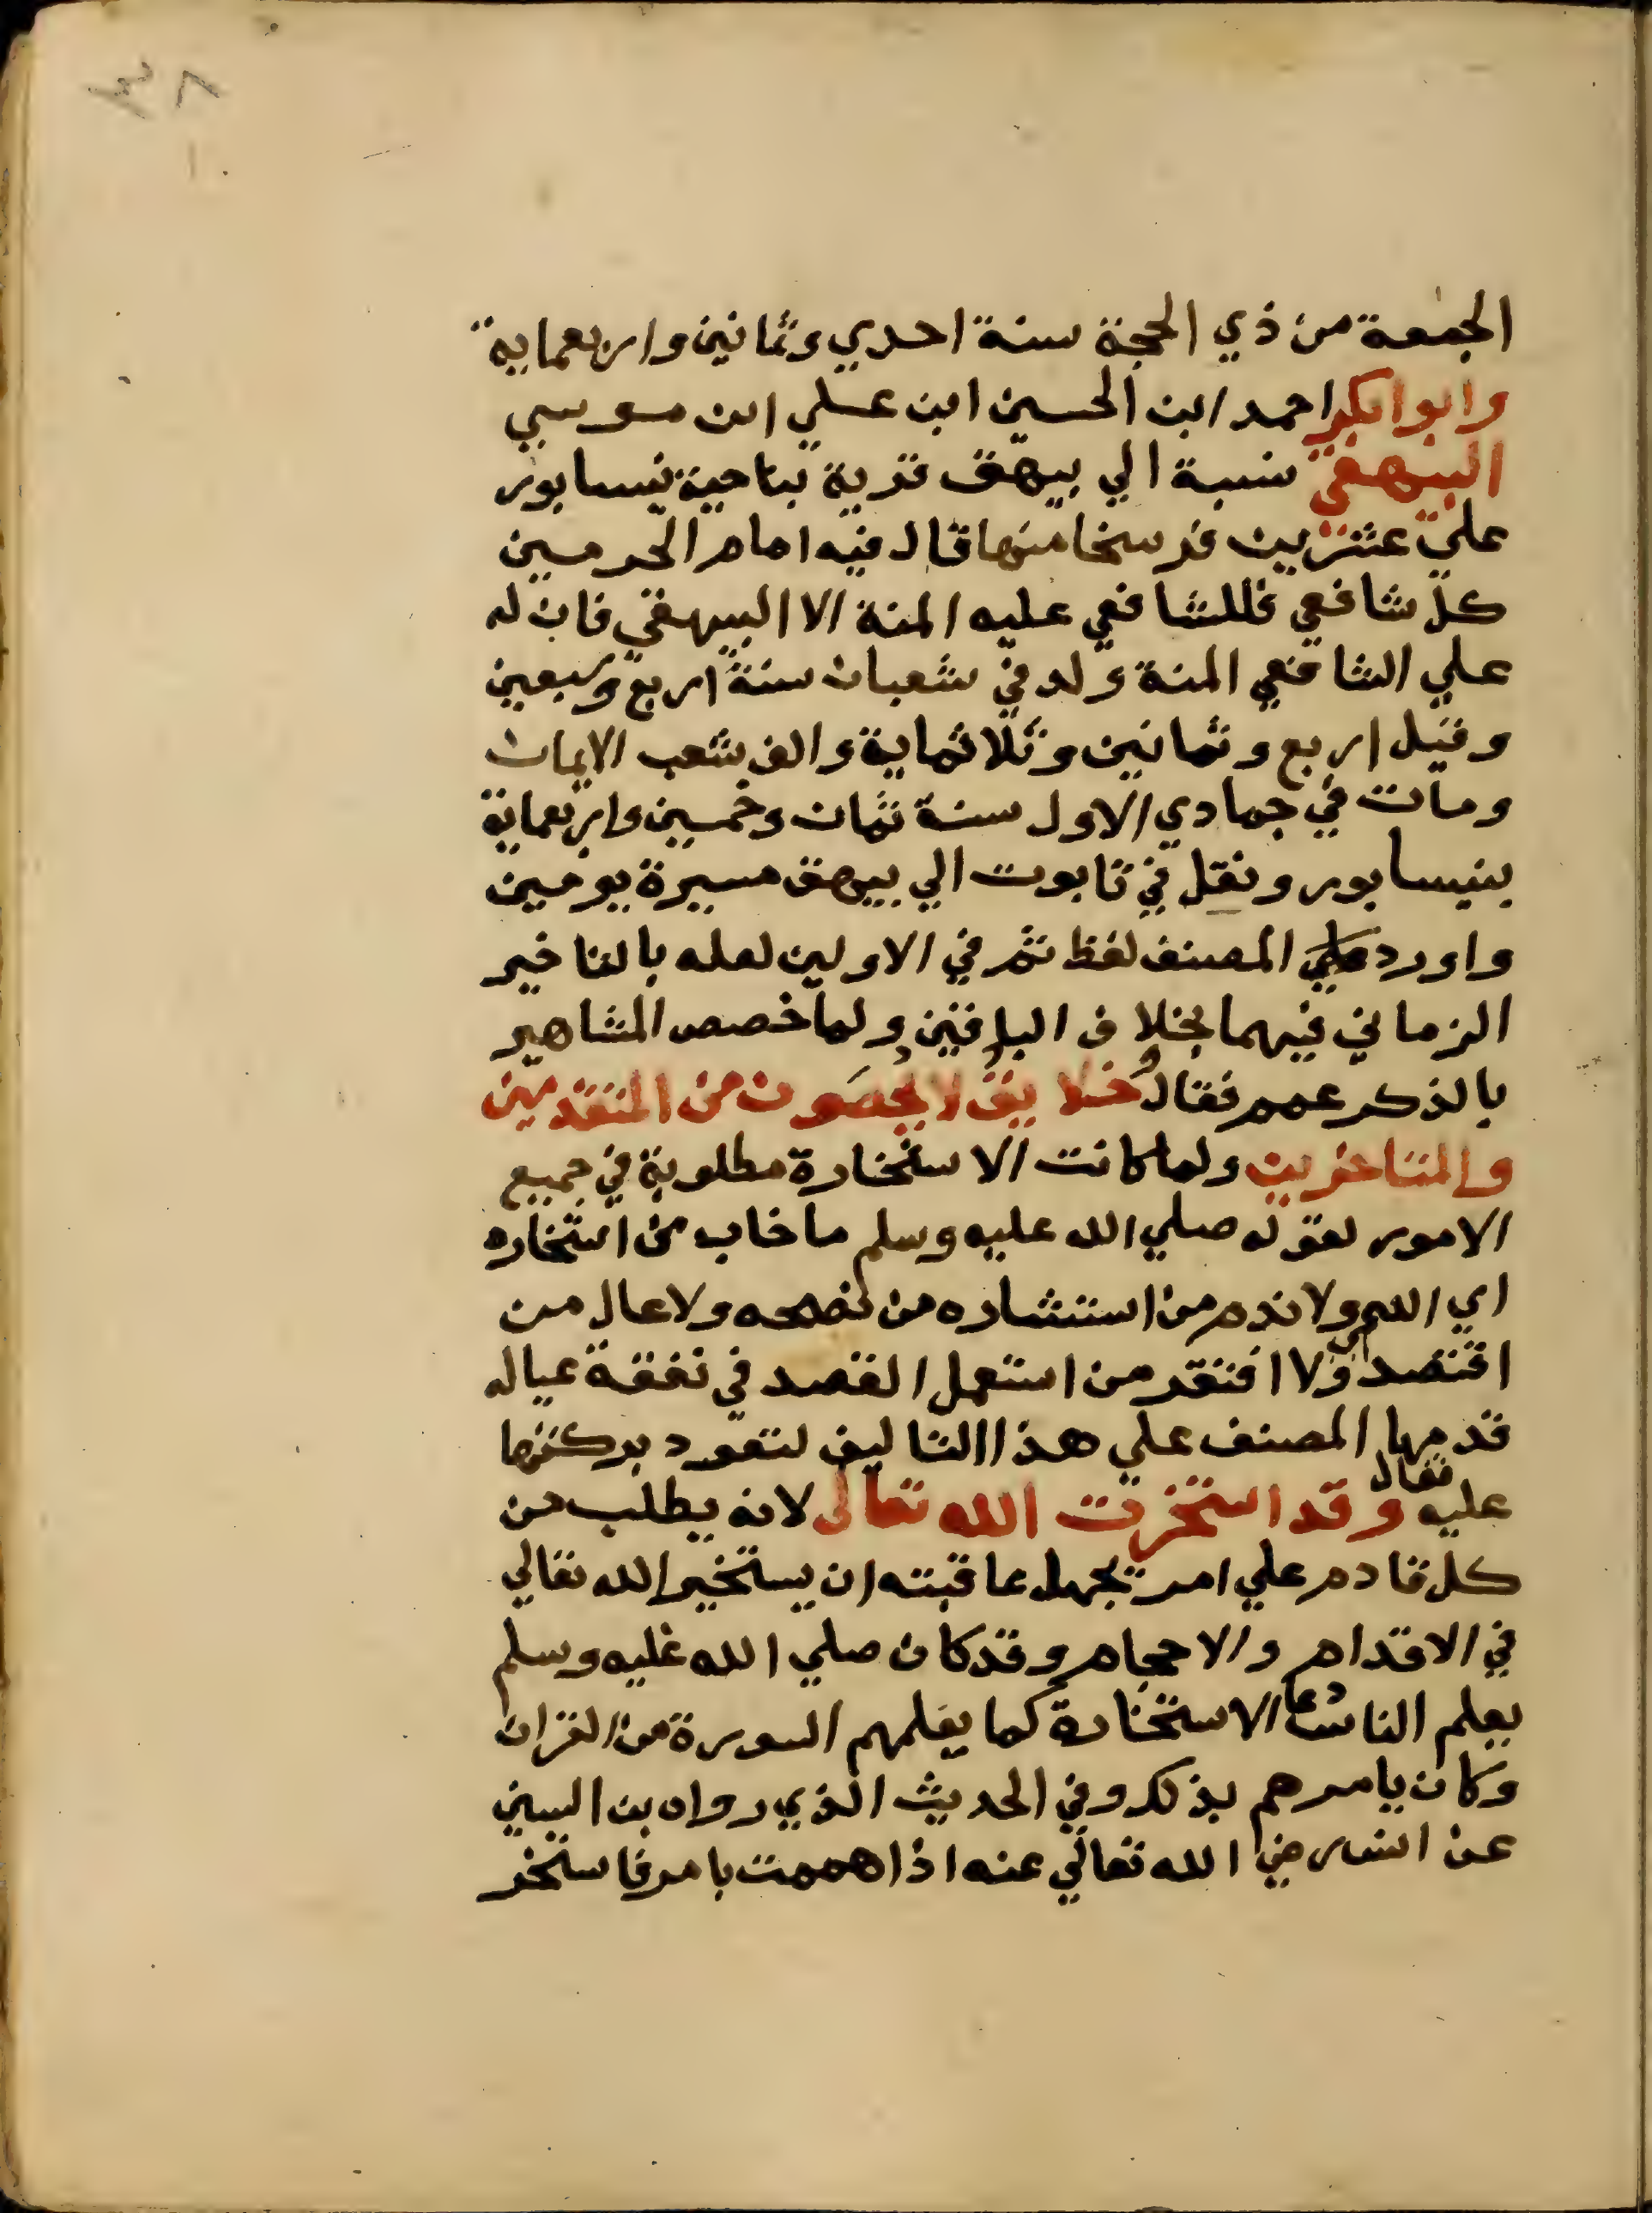 ٣٨
الجمعة من ذي الحجة سنة احدي وثمانين واربعماية
وابوابكر احمد ابن الحسين ابن علي ابن موسي
البيهقي نسبة الي بيهق قرية بناحية نيسابور
علي عشرين فرسخا منها قال فيه امام الحرمين
كل شافعي فللشافعي عليه المنة الا البيهقي فان له
علي الشافعي المنة ولد في شعبان سنة اربع وسبعين
وقيل اربع وثمانين وثلاثماية والف شعب الايمان
ومات في جمادي الاول سنة ثمان وخمسين واربعماية
بنيسابور ونقل في تابوت الي بيهق مسيرة يومين
واورد المصنف لفظ ثم في الاولين لعله بالتاخير
الزماني فيهما بخلاف الباقين ولما خصص المشاهير
بالذكر عمم فقال وخلايق لا يحصون من المتقدمين
والمتاخرين ولما كانت الاستخارة مطلوبة في جميع
الامور لقوله صلي الله عليه وسلم ما خاب من استخاره
اي الله ولا ندم من استشاره من نصحه ولا عال من
اقتصد اي ولا افتقر من استعمل القصد في نفقة عياله
قدمها المصنف علي هذا التاليف لتعود بركتها
عليه فقال وقد استخرت الله تعالى لانه يطلب من
كل قادم علي امر يجهل عاقبته ان يستخير الله تعالي
في الاقدام والاحجام وقد كان صلي الله عليه وسلم
يعلم الناس دعا الاستخارة كما يعلمهم السورة من القران
وكان يامرهم بذلك وفي الحديث الذي رواه بن السني
عن انس رضي الله تعالي عنه اذا هممت بامر فاستخر